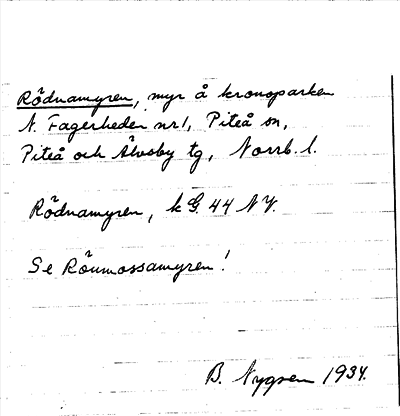 Rödnamyren, myr å kronoparken
N. Fagerheden nr 1, Piteå sn,
Piteå och Älvsby tg, Norrb. l.
Rödnamyren, k G. 44 NV.
Se Röumossamyren!
B. Nygren 1934.